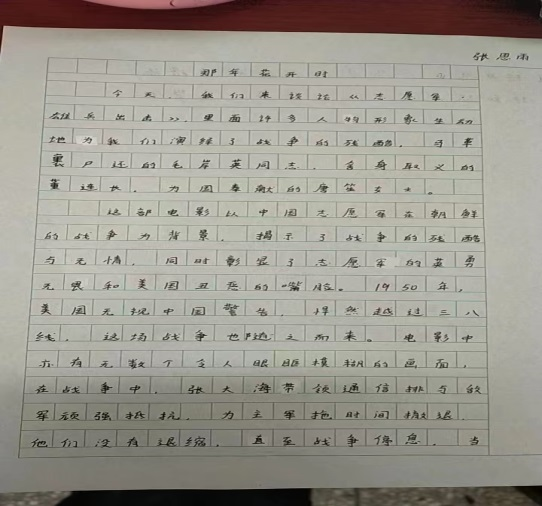 张思雨
那年花开时
今天，我们来谈论《志愿军·
雄兵出击》，里面许多人的形象生动
地为我们演绎了战争的残酷，马革
裹尸还的毛岸英同志，舍身取义的
董连长，为国奉献的唐笙女士。
这部电影以中国志愿军在朝鲜
的战争为背景，揭示了战争的残酷
与无情，同时彰显了志愿军的英勇
无畏和美国丑恶的嘴脸。1950年，
美国无视中国警告，悍然越过三八
线，这场战争也随之而来。电影中
亦有无数个令人眼眶模糊的画面，
在战争中，张大海带领通信排与敌
军顽强抵抗，为主军拖时间撤退，
他们没有退缩，直至战争停息，当